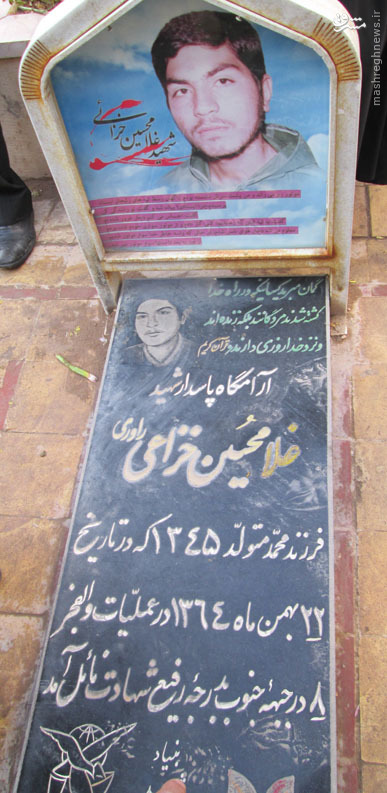 مشرق
mashreghnews.ir
شهید غلامحسین خزاعی
گمان مبرید کسانیکه در راه خدا
کشته شدند مردگانند بلکه زنده اند
و نزد خدا روزی دارند قرآن کریم
آرامگاه پاسدار شهید
غلامحسین خزاعی راوری
فرزند محمد متولد ۱۳۴۵ که در تاریخ
۲۲ بهمن ماه ۱۳۶۴ در عملیات والفجر
۸ در جبهه جنوب بدرجه رفیع شهادت نائل آمد
بنیاد